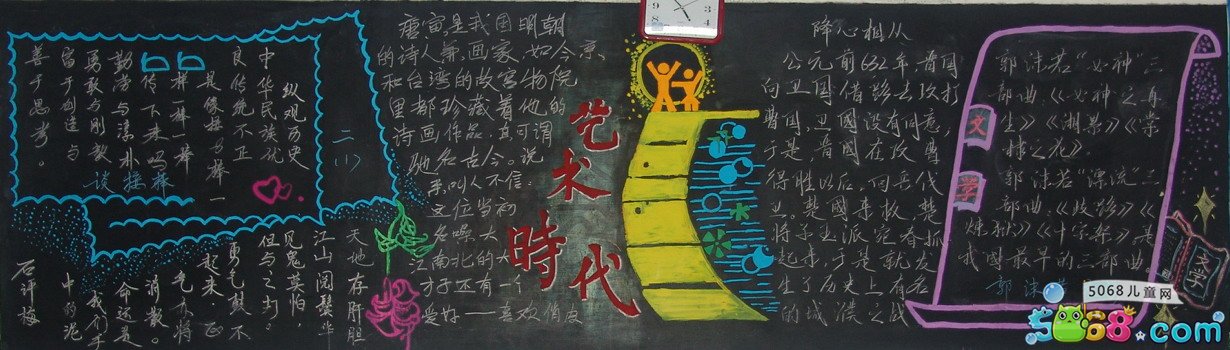 纵观历史
中华民族
良传统不正
是像接力棒一
样一棒一棒
传下来吗
勤劳与淳朴
勇敢与刚毅
富于创造与
善于思考。
谈接棒
二(1)
天地存肝胆
江山阅鬓华
见鬼莫怕，
但与之打。
勇气鼓不
起来.正
气亦将
消散。
命运是
我们手
中的泥
石评梅
唐寅,是我国明朝
的诗人兼画家,如今京、
和台湾的故宫物院
里都珍藏着他的
诗画作品,真可谓
驰名古今。说
来,叫人不信.
这位当初
名噪大
江南北的大
才子还有一个
爱好——喜欢
艺术時代
降心相从
公元前632年,晋国
向卫国借路去攻打
曹国,卫國没有同意,
于是,晋國在攻曹
得胜以后,回兵伐
卫。楚國来救,楚
将子玉派宛春抓
起来,于是就发
生了历史上有名
的城濮之战
文学
郭沫若“女神”三
部曲《女神之再
生》《湘累》《棠
棣之花》
郭沫若“漂流三
部曲:《歧路》《
炼狱》《十字架》是
我国最早的三部曲
郭沫
文学
5068儿童网
5068.com